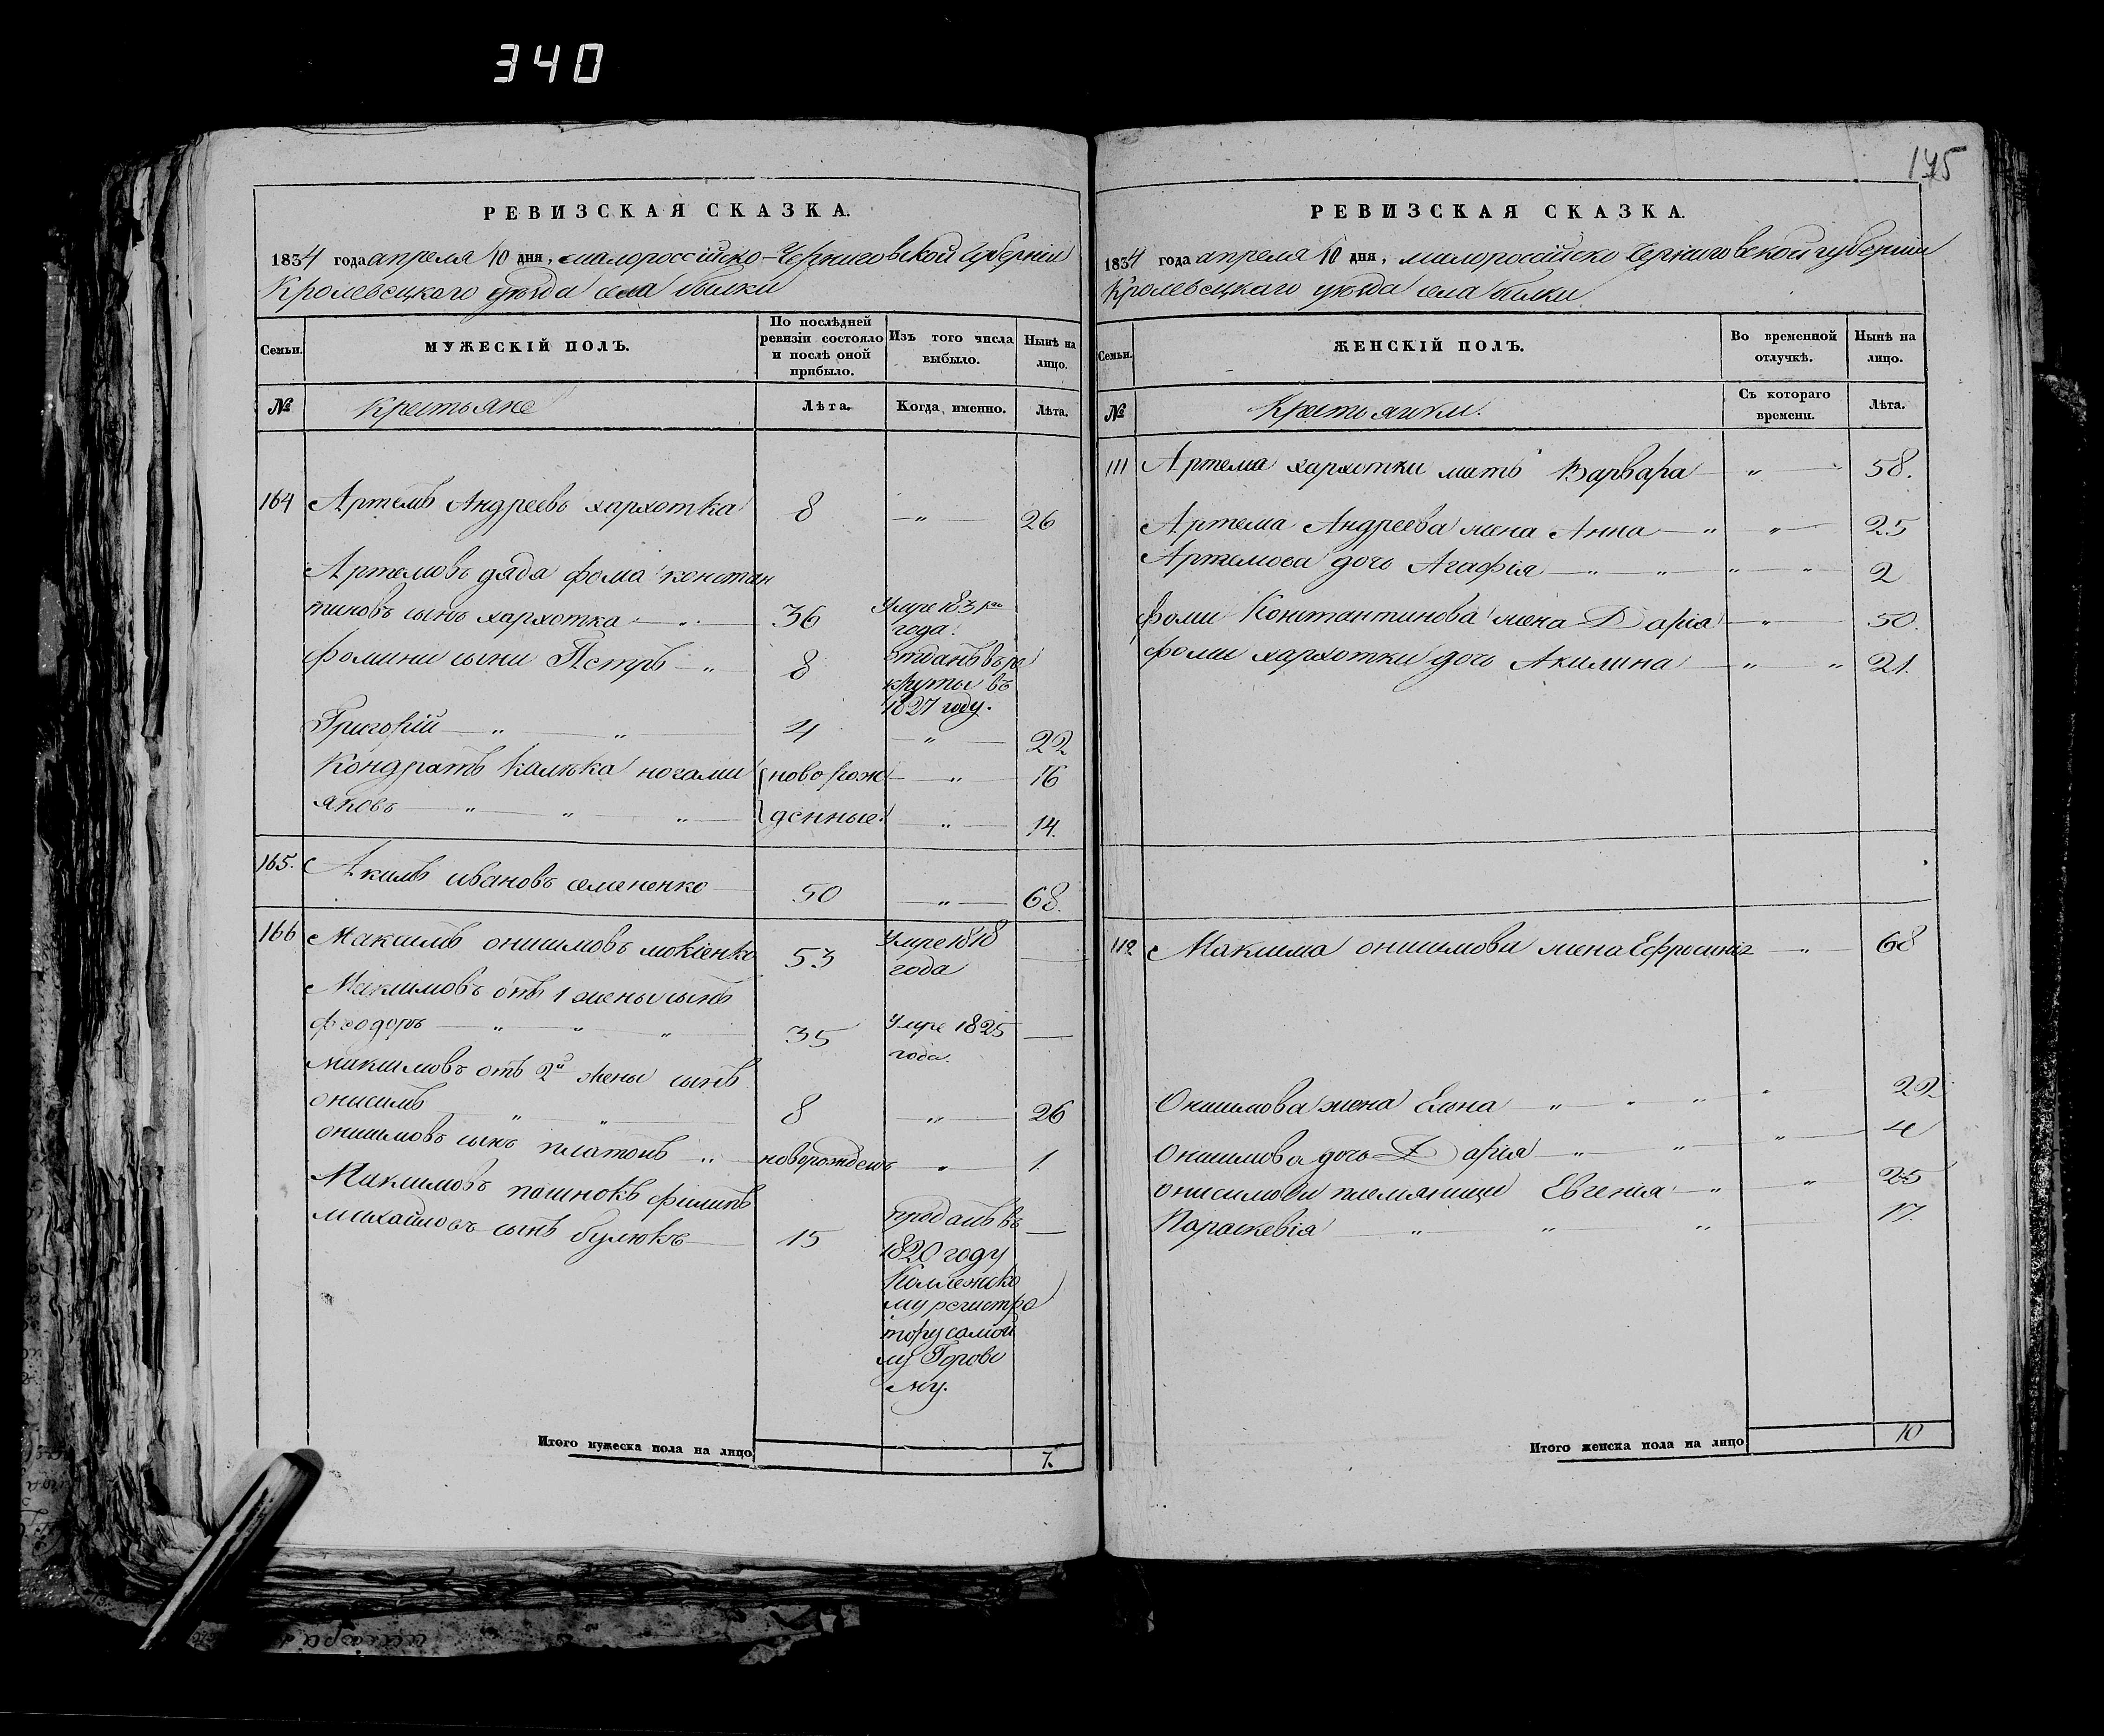 340
175
РЕВИЗСКАЯ СКАЗКА.
1834 года апреля 10 дня, малороссійско-Черниговской губерніи
Кролевецкаго уезда села билки
Семьи.
МУЖЕСКІЙ ПОЛЪ.
По послѣдней ревизіи состояло и послѣ оной прибыло.
Изъ того числа выбыло.
Нынѣ на лицо.
№
Крестьяне
Лѣта.
Когда именно.
Лѣта.
164 Артемъ Андреевъ хархотка 8 — „ — 26
Артемовъ дядя фома констан
тиновъ сынъ хархотка — „ — 36 Умре 183
года.
фомини сыни Петръ — „ 8 Отданъ въ ре
круты въ
1827 году.
Григорій — „ — „ — 4 — „ — 22
Кондратъ калѣка ногами новорож — „ — 16
яковъ — „ — „ — „ — денные. — „ — 14.
165. Акимъ ивановъ семененко — 50 — „ — 68.
166 Максимъ онисимовъ мокіенко 53 Умре 1818 —
года
Максимовъ отъ 1 жены сынъ
феодоръ — „ — „ — „ 35 Умре 1825 —
года.
максимовъ отъ 2й жены сынъ
онисимъ „ „ 8 — „ — 26
онисимовъ сынъ платонъ — „ новорожденъ — „ 1.
Максимовъ пашнокъ филипъ
михайловъ сынъ булюкъ — 15 продань въ —
1820 году
му регистра
тору самой
му Горово
му.
Итого мужеска пола на лицо 7.
РЕВИЗСКАЯ СКАЗКА.
1834 года апреля 10 дня, малороссійско Черниговской губерніи
Кролевецкаго уезда села билки
Семьи.
ЖЕНСКІЙ ПОЛЪ.
Во временной отлучкѣ.
Нынѣ на лицо.
№
Крестьянки.
Съ котораго времени.
Лѣта.
111 Артема хархотки мать Варвара — „ — 58.
Артема Андреева жена Анна — „ — „ — 25
Артемова дочь Агафія — „ — „ — „ — „ 2
фоми Константинова жена Дарія — „ — 50.
фоми хархотки дочь Акилина — „ — „ 21.
112. Максима онисимова жена Ефросинія — „ — 68
Онисимова жена Елена — „ — „ — „ „ 22
Онисимова дочь Дарія — „ — „ — „ — 4
онисимови племяници Евгенія — „ — „ — 25
Параскевія — „ — „ — „ — 17.
Итого женска пола на лицо 10